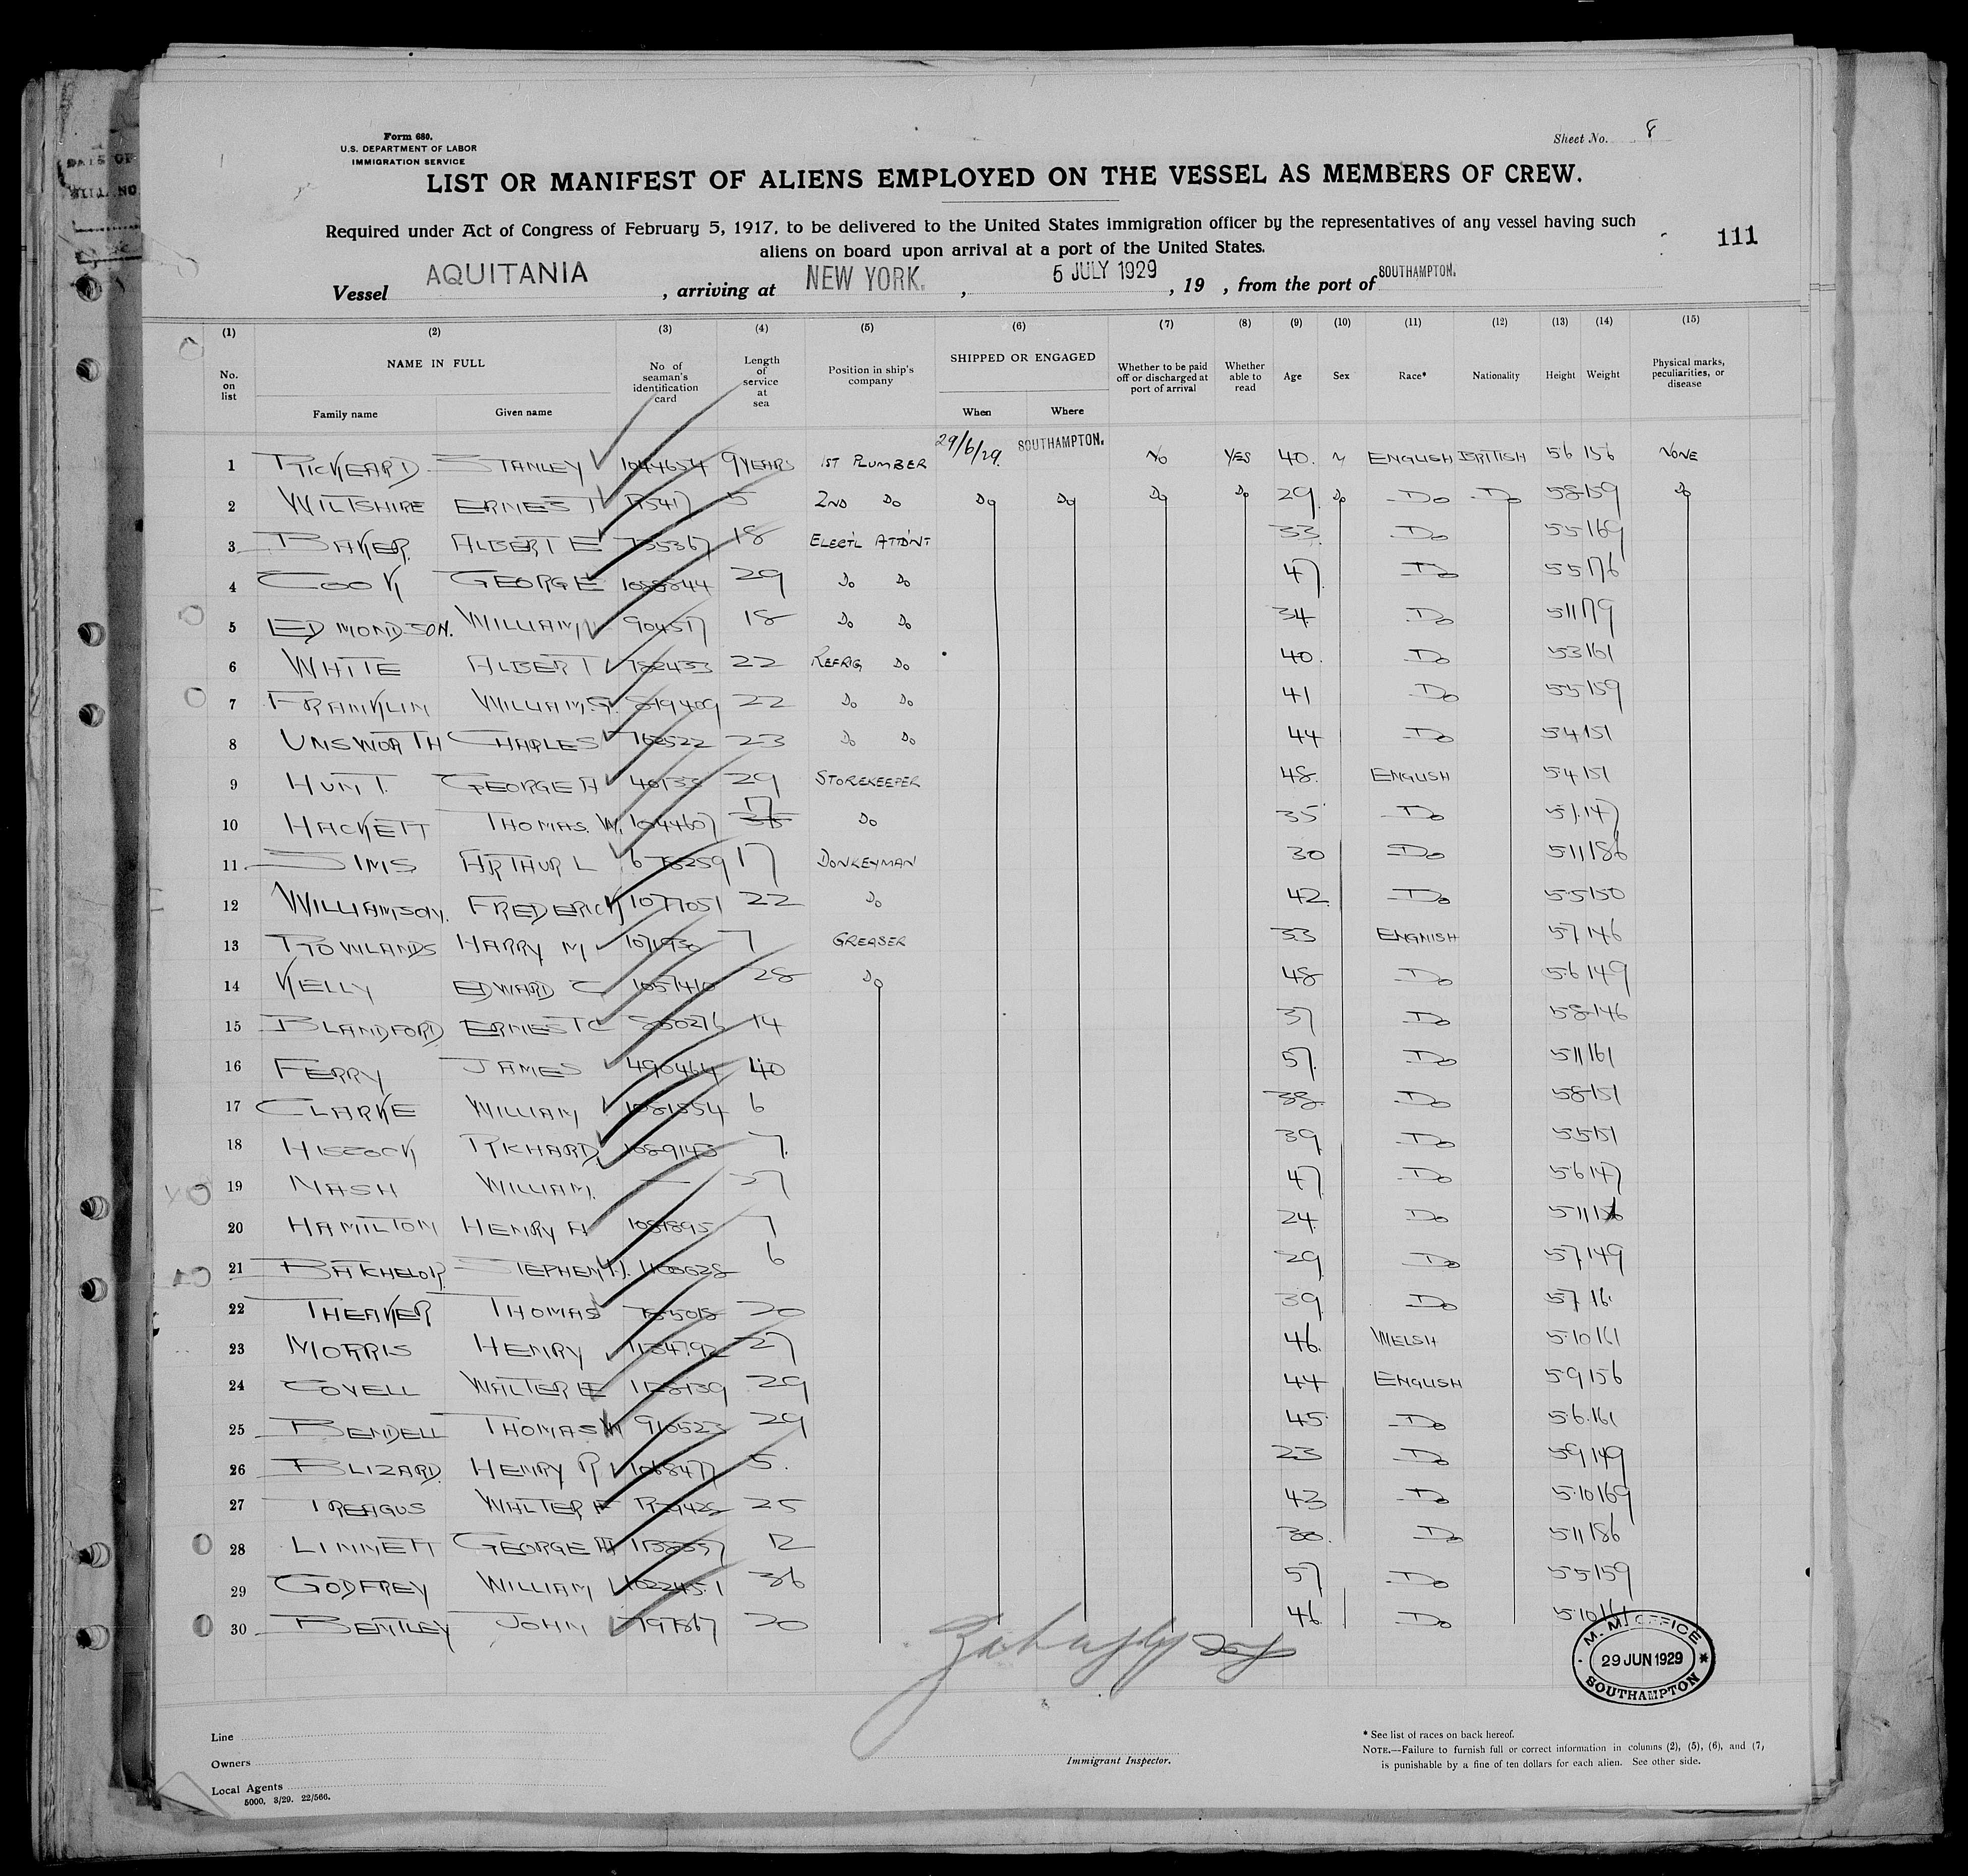 Form 680.
U.S. DEPARTMENT OF LABOR
IMMIGRATION SERVICE
Sheet No. 8
LIST OR MANIFEST OF ALIENS EMPLOYED ON THE VESSEL AS MEMBERS OF CREW.
Required under Act of Congress of February 5, 1917, to be delivered to the United States immigration officer by the representatives of any vessel having such
aliens on board upon arrival at a port of the United States.
111
Vessel AQUITANIA, arriving at NEW YORK. , 5 JULY 1929, 19 , from the port of SOUTHAMPTON.
(1) (2) (3) (4) (5) (6) (7) (8) (9) (10) (11) (12) (13) (14) (15)
No. on list NAME IN FULL Family name Given name No of seaman's identification card Length of service at sea Position in ship's company SHIPPED OR ENGAGED When Where Whether to be paid off or discharged at port of arrival Whether able to read Age Sex Race* Nationality Height Weight Physical marks, peculiarities, or disease
1 RICKEARD STANLEY 1044654 9 YEARS 1ST PLUMBER 29/6/29. SOUTHAMPTON. NO YES 40. M ENGLISH BRITISH 56 156 NONE
2 WILTSHIRE ERNEST 5 2ND DO DO DO DO DO 29 DO DO DO 58 159 DO
3 BAKER ALBERT E 735367 18 ELECT'L ATTDNT 33 DO 55 169
4 COOK GEORGE 29 DO DO 47 DO 55 176
5 EDMONDSON. WILLIAM 904517 18 DO DO 34 DO 511 179
6 WHITE ALBERT 782433 22 REFRIG DO 40. DO 53 161
7 FRANKLIN WILLIAM.G. 819409 22 DO DO 41 DO 55 159
8 UNSWORTH CHARLES 762522 23 DO DO 44 DO 54 151
9 HUNT. GEORGE A 29 STOREKEEPER 48. ENGLISH 54 151
10 HACKETT THOMAS. W. 1044607 17 DO 35 DO 57 147
11 SIMS ARTHUR L 17 DONKEYMAN 30 DO 511 186
12 WILLIAMSON. FREDERICK 1077051 22 DO 42. DO 55 150
13 ROWLANDS HARRY M 7 GREASER 33 ENGLISH 57 146
14 KELLY EDWARD C 1057410 28 DO 48 DO 56 149
15 BLANDFORD ERNEST C 14 37 DO 58 146
16 FERRY JAMES 490464 40 57. DO 511 161
17 CLARKE WILLIAM 6 38 DO 58 151
18 HISCOCK RICHARD 1089143 7. 39 DO 55 151
19 NASH WILLIAM. — 37 47 DO 56 147
20 HAMILTON HENRY A 7 24. DO 511
21 BATCHELOR STEPHEN 6 29 DO 57 149
22 THEAKER THOMAS 20 39 DO 57 161
23 MORRIS HENRY 27 46. WELSH 5.10 161
24 COVELL WALTER E 29 44 ENGLISH 59 156
25 BENDELL THOMAS W 910523 29 45. DO 5.6. 161
26 BLIZARD. HENRY R 1068477 5. 23 DO 59 149
27 TREAGUS WALTER F 25 43 DO 5.10 169
28 LINNETT GEORGE 12 30. DO 511 186
29 GODFREY WILLIAM 1022451 36 57 DO 55 159
30 BENTLEY JOHN 797867 20 46 DO 5.10 161
M. M. OFFICE
29 JUN 1929
SOUTHAMPTON
Line
Owners
Local Agents
5000. 3/29. 22/566.
Immigrant Inspector.
* See list of races on back hereof.
NOTE.—Failure to furnish full or correct information in columns (2), (5), (6), and (7)
is punishable by a fine of ten dollars for each alien. See other side.